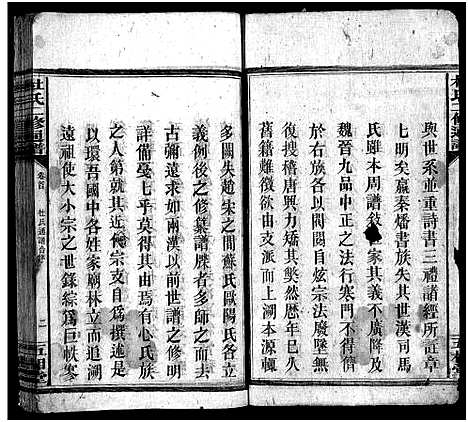 杜氏二修通譜
與世系並重詩書三禮諸經所註章
七明矣嬴秦燔書族失其世漢司馬
氏雖本周譜敘 其義不廣降及
魏晉九品中正之法行寒門不得儕
于右族各以閥閱自炫宗法廢墜無
復搜稽唐興力矯其弊然歷年已久
舊籍難徵欲由支派而上溯本源輒
多闕失趙宋之間蘇氏歐陽氏各立
古彌遠求如兩漢以前世譜之修明
詳備戛戛乎莫得其由焉有心氏族
之人第就其近 宗支自為撰述是
以環吾國中各姓家廟林立而追溯
遠祖使大小宗之世錄綜為巨帙寒
杜氏二修通譜
卷首
杜氏通譜
二
五桐堂